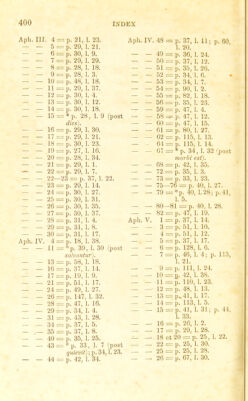 400 INDEX
Aph. III. 4 = p. 21, l. 23.
— — 5 = p. 29, l. 21.
— — 6 = p. 30, l. 9.
— — 7 = p. 29, l. 29.
— — 8 = p. 28, l. 18.
— — 9 = p. 28, l. 3.
— — 10 = p. 48, l. 18.
— — 11 = p. 29, l. 37.
— — 12 = p. 30, l. 4.
— — 13 = p. 30, l. 12.
— — 14 = p. 30, l. 18.
— — 15 = * p. 28, l. 9 (post
dies).
— — 16 = p. 29, l. 30.
— — 17 = p. 29, l. 21.
— — 18 = p. 30, l. 23.
— — 19 = p. 27, l. 16.
— — 20 = p. 28, l. 34.
— — 21 = p. 29, l. 1.
— — 22 = p. 29, l. 7.
— — 22–23 = p. 37, l. 22.
— — 23 = p. 29, l. 14.
— — 24 = p. 30, l. 27.
— — 25 = p. 30, l. 31.
— — 26 = p. 30, l. 35.
— — 27 = p. 30, l. 37.
— — 28 = p. 31, l. 4.
— — 29 = p. 31, l. 8.
— — 30 = p. 31, l. 17.
Aph. IV. 4 = p. 18, l. 38.
— — 11 = * p. 39, l. 30 (post
soluontur).
— — 13 = p. 58, l. 18.
— — 16 = p. 37, l. 14.
— — 17 = p. 19, l. 9.
— — 21 = p. 51, l. 17.
— — 24 = p. 49, l. 27.
— — 26 = p. 147, l. 32.
— — 28 = p. 47, l. 16.
— — 29 = p. 34, l. 4.
— — 31 = p. 43, l. 28.
— — 34 = p. 37, l. 5.
— — 35 = p. 37, l. 8.
— — 40 = p. 35, l. 25.
— — 43 = * p. 33, l. 7 (post
quieuit); p. 34, l. 23.
— — 44 = p. 42, l. 34.
Aph. IV. 48 = p. 37, l. 11; p. 60,
l. 20.
— — 49 = p. 36, l. 24.
— — 50 = p. 37, l. 12.
— — 51 = p. 35, l. 26.
— — 52 = p. 34, l. 6.
— — 53 = p. 34, l. 7.
— — 54 = p. 90, l. 2.
— — 55 = p. 82, l. 18.
— — 56 = p. 35, l. 23.
— — 59 = p. 47, l. 4.
— — 58 = p. 47, l. 12.
— — 60 = p. 47, l. 15.
— — 61 = p. 80, l. 27.
— — 62 = p. 115, l. 13.
— — 64 = p. 115, l. 14.
— — 67 = * p. 34, l. 32 (post
morbi est).
— — 68 = p. 42, l. 35.
— — 72 = p. 35, l. 3.
— — 73 = p. 33, l. 23.
— — 75–76 = p. 40, l. 27.
— — 79 = * p. 40, l. 28; p. 41,
l. 5.
— — 80–81 = p. 40, l. 28.
— — 82 = p. 47, l. 19.
Aph. V. 1 = p. 37, l. 14.
— — 3 = p. 51, l. 10.
— — 4 = p. 51, l. 12.
— — 5 = p. 37, l. 17.
— — 6 = p. 128, l. 6.
— — 7 = p. 46, l. 4; p. 115,
l. 21.
— — 9 = p. 111, l. 24.
— — 10 = p. 42, l. 38.
— — 11 = p. 110, l. 23.
— — 12 = p. 48, l. 13.
— — 13 = p. 41, l. 17.
— — 14 = p. 113, l. 5.
— — 15 = p. 41, l. 31; p. 44,
l. 33.
— — 16 = p. 26, l. 2.
— — 17 = p. 29, l. 28.
— — 18 et 20 = p. 25, l. 22.
— — 22 = p. 25, l. 30.
— — 25 = p. 25, l. 28.
— — 26 = p. 67, l. 30.